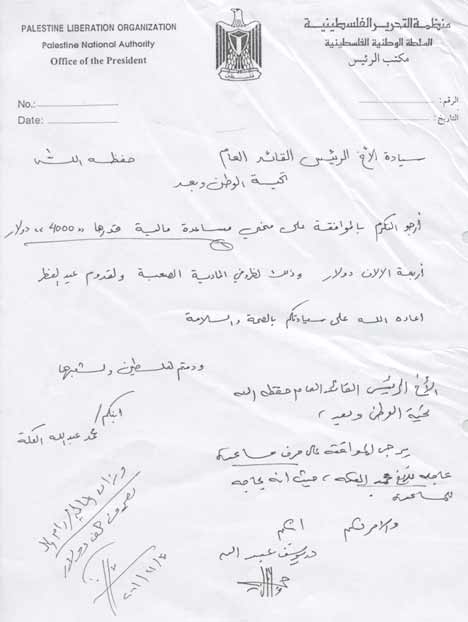 PALESTINE LIBERATION ORGANIZATION
Palestine National Authority
Office of the President
منظمة التحرير الفلسطينية
السلطة الوطنية الفلسطينية
مكتب الرئيس
No.:
Date:
الرقم :
التاريخ :
سيادة الأخ الرئيس القائد العام حفظه الله
تحية الوطن وبعد
أرجو التكرم بالموافقة على منحي مساعدة مالية قدرها "4000" دولار
أربعة الالاف دولار وذلك لظروفي المادية الصعبة ولقدوم عيد الفطر
اعاده الله على سيادتكم بالصحة والسلامة
ودمتم لفلسطين ولشعبها
ابنكم/
محمد عبدالله
الأخ الرئيس القائد العام حفظه الله
تحية الوطن وبعد ،
يرجى الموافقة على صرف مساعدة
عاجلة للأخ محمد ، حيث أنه بحاجة
للمساعدة
والأمر لكم
ابنكم
وزارة المالية / رام الله
دولار